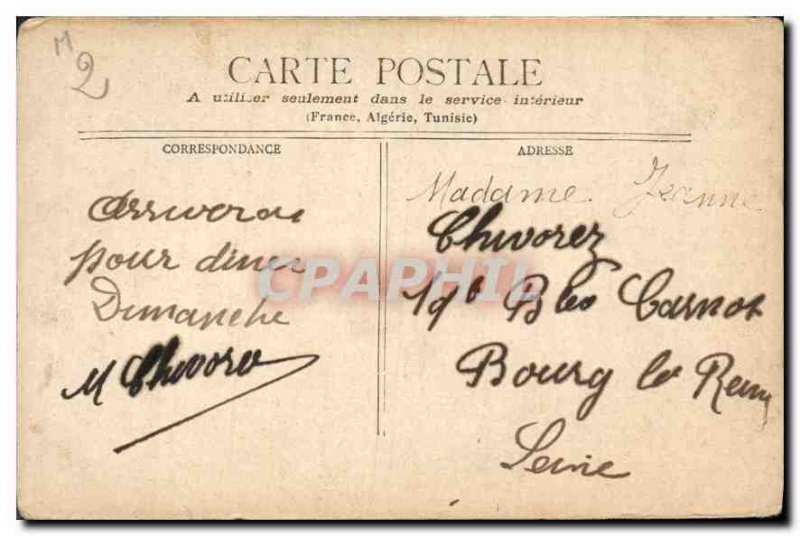 M
2
CARTE POSTALE
A utiliser seulement dans le service intérieur
(France, Algérie, Tunisie)
CORRESPONDANCE
ADRESSE
Arriverai
pour diner
Dimanche
M Chivorez
Madame Jeanne
Chivorez
Bd Carnot
Bourg la Reine
Seine
CPAPHIL